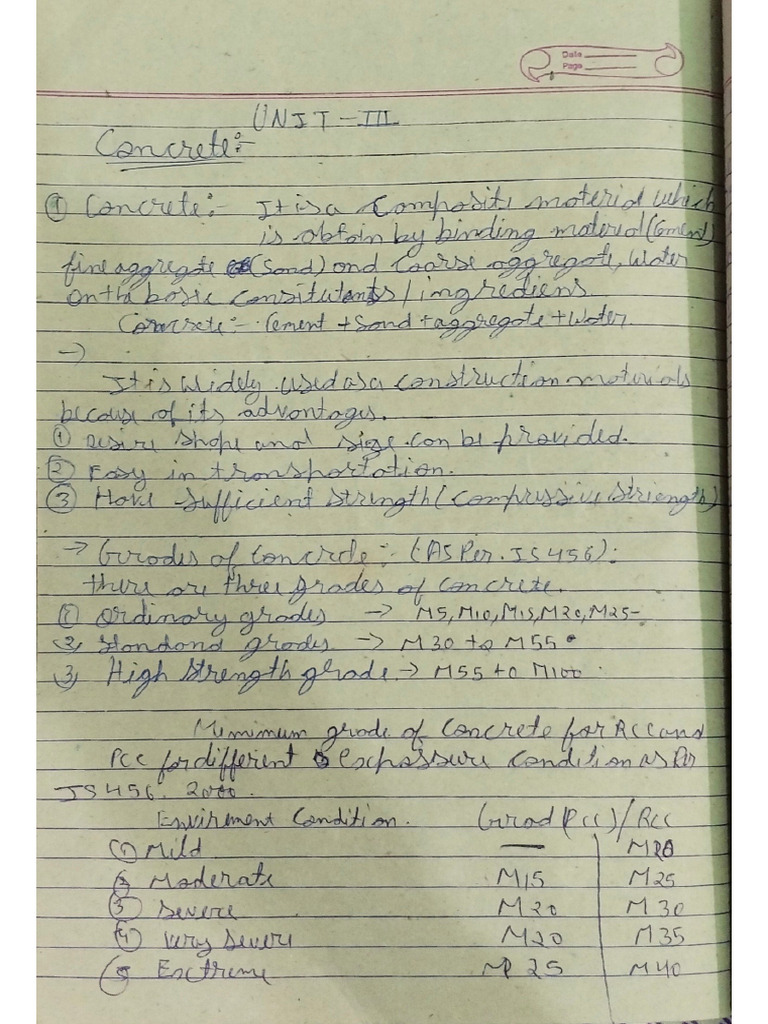 Date
Page
UNIT-III
Concrete:-
① Concrete:- It is a Composite material which
is obtain by binding material (Cement)
fine aggregate (Sand) and Coarse aggregate, Water
on the basic Consitutants/ingrediens.
Concrete:- Cement + Sand + aggregate + Water.
→
It is Widely used as a construction materials
because of its advantages.
① Desire shape and size can be provided.
② Easy in transportation.
③ Have Sufficient Strength (Compressive Strength)
→ Grades of Concrete:- (AS Per. IS 456):
there are three grades of Concrete.
① Ordinary grades → M5, M10, M15, M20, M25-
2, Standard grades → M30 to M55
3, High Strength grade → M55 to M100.
Minimum grade of Concrete for RCC and
PCC for different expossure Condition as Per
IS 456. 2000.
Envirement Condition. Grad (PCC)/RCC
① Mild — M20
2 Moderate M15 M25
③ Severe M20 M30
④ Very Severe M20 M35
5 Exctreme M 25 M40